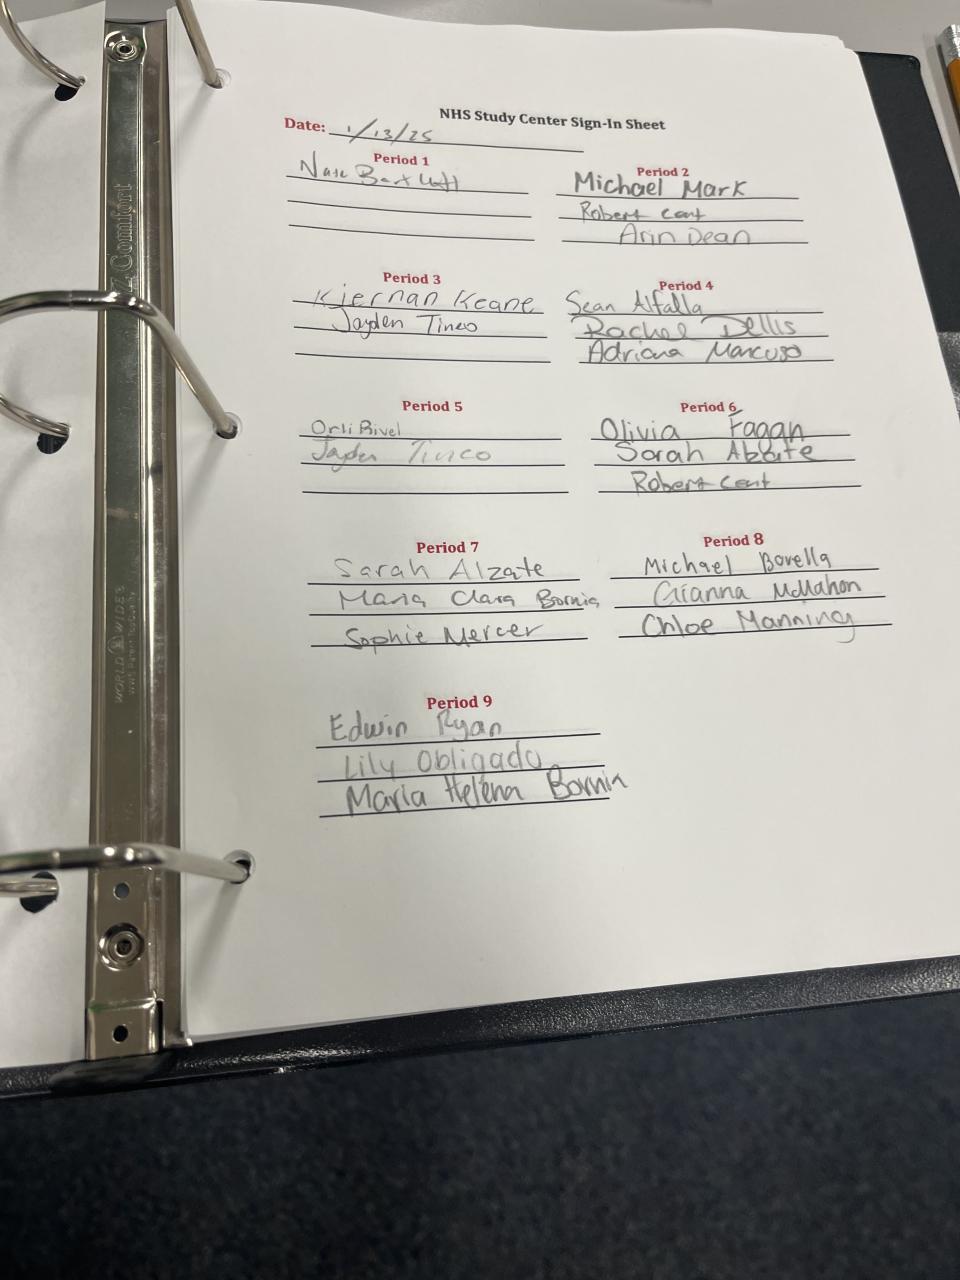 NHS Study Center Sign-In Sheet
Date: 1/13/25
Period 1
Nate Bartlett
Period 2
Michael Mark
Robert Cent
Arin Dean
Period 3
Kiernan Keane
Jayden Tineo
Period 4
Sean Alfalla
Rachel Dellis
Adriana Mancuso
Period 5
Orli Rivel
Jayden Tineo
Period 6
Olivia Fagan
Sarah Abbate
Robert Cent
Period 7
Sarah Alzate
Maria Clara Bornia
Sophie Mercer
Period 8
Michael Borella
Gianna McMahon
Chloe Manning
Period 9
Edwin Ryan
Lily Obligado
Maria Helena Bornia
Comfort
WORLD WIDE